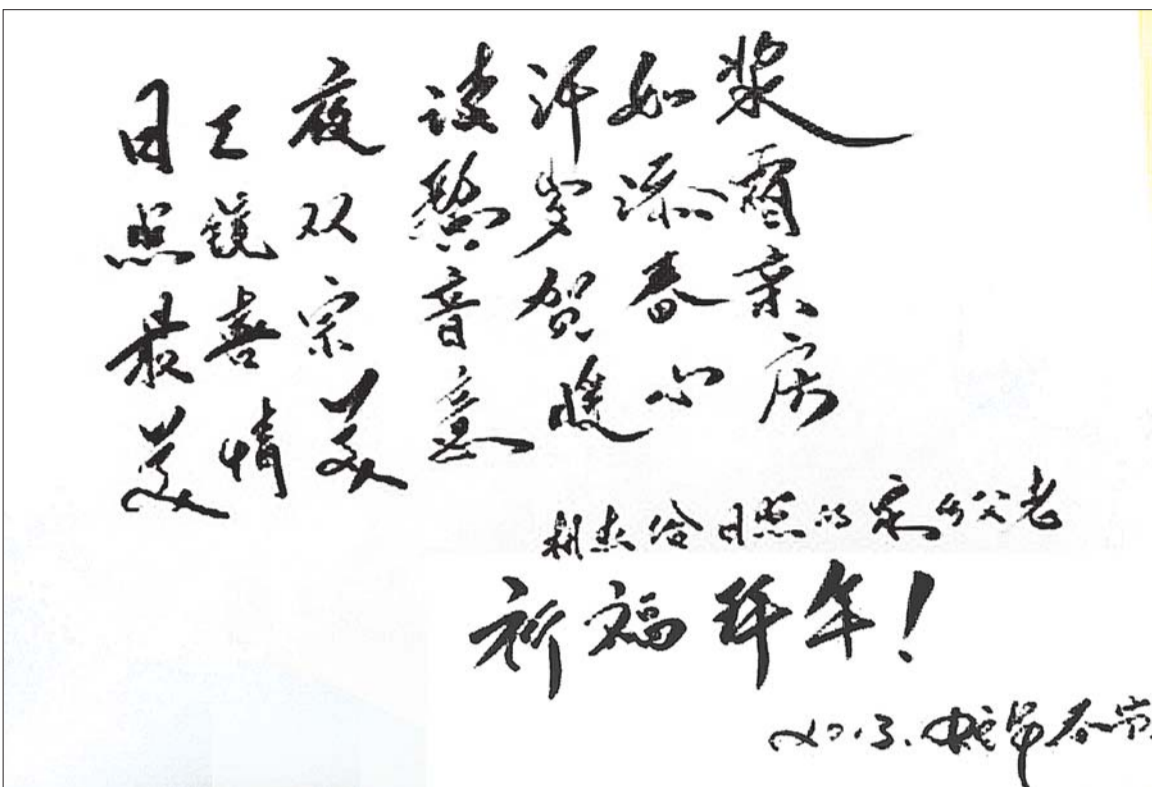 日工夜读汗如浆
照镜双鬓岁添霜
最喜家音贺春
美情美意暖心房
给日照的家乡父老
祈福拜年！
2013.蛇年春节